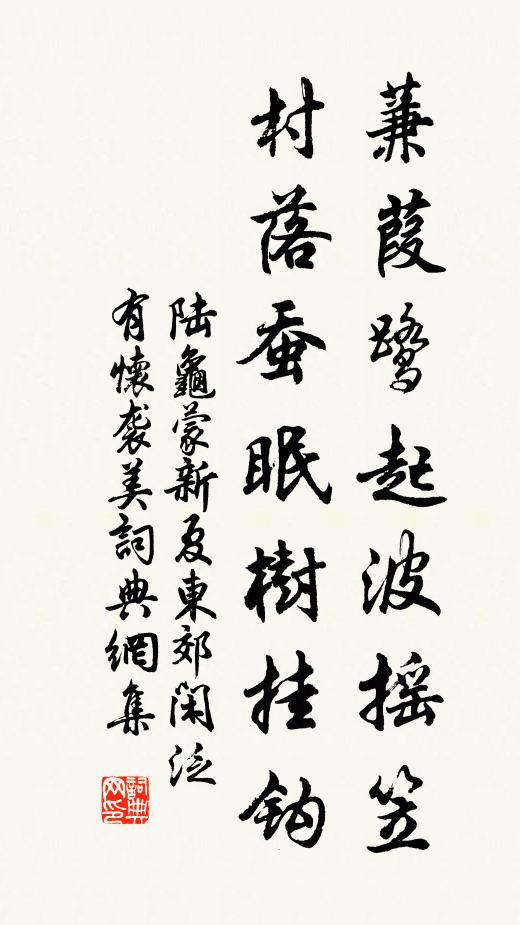 蒹葭鹭起波摇笠
村落蚕眠樹挂鈎
陆龜蒙新夏東郊閑泛
有懷袭美詞典網集
詞典网印